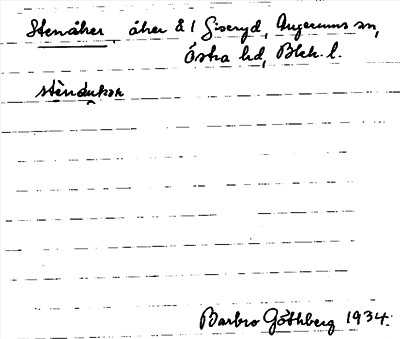 Stenåker, åker å 1 Giseryd, Augerums sn,
Östra hd, Blek. l.
stènåkər
Barbro Göthberg 1934.